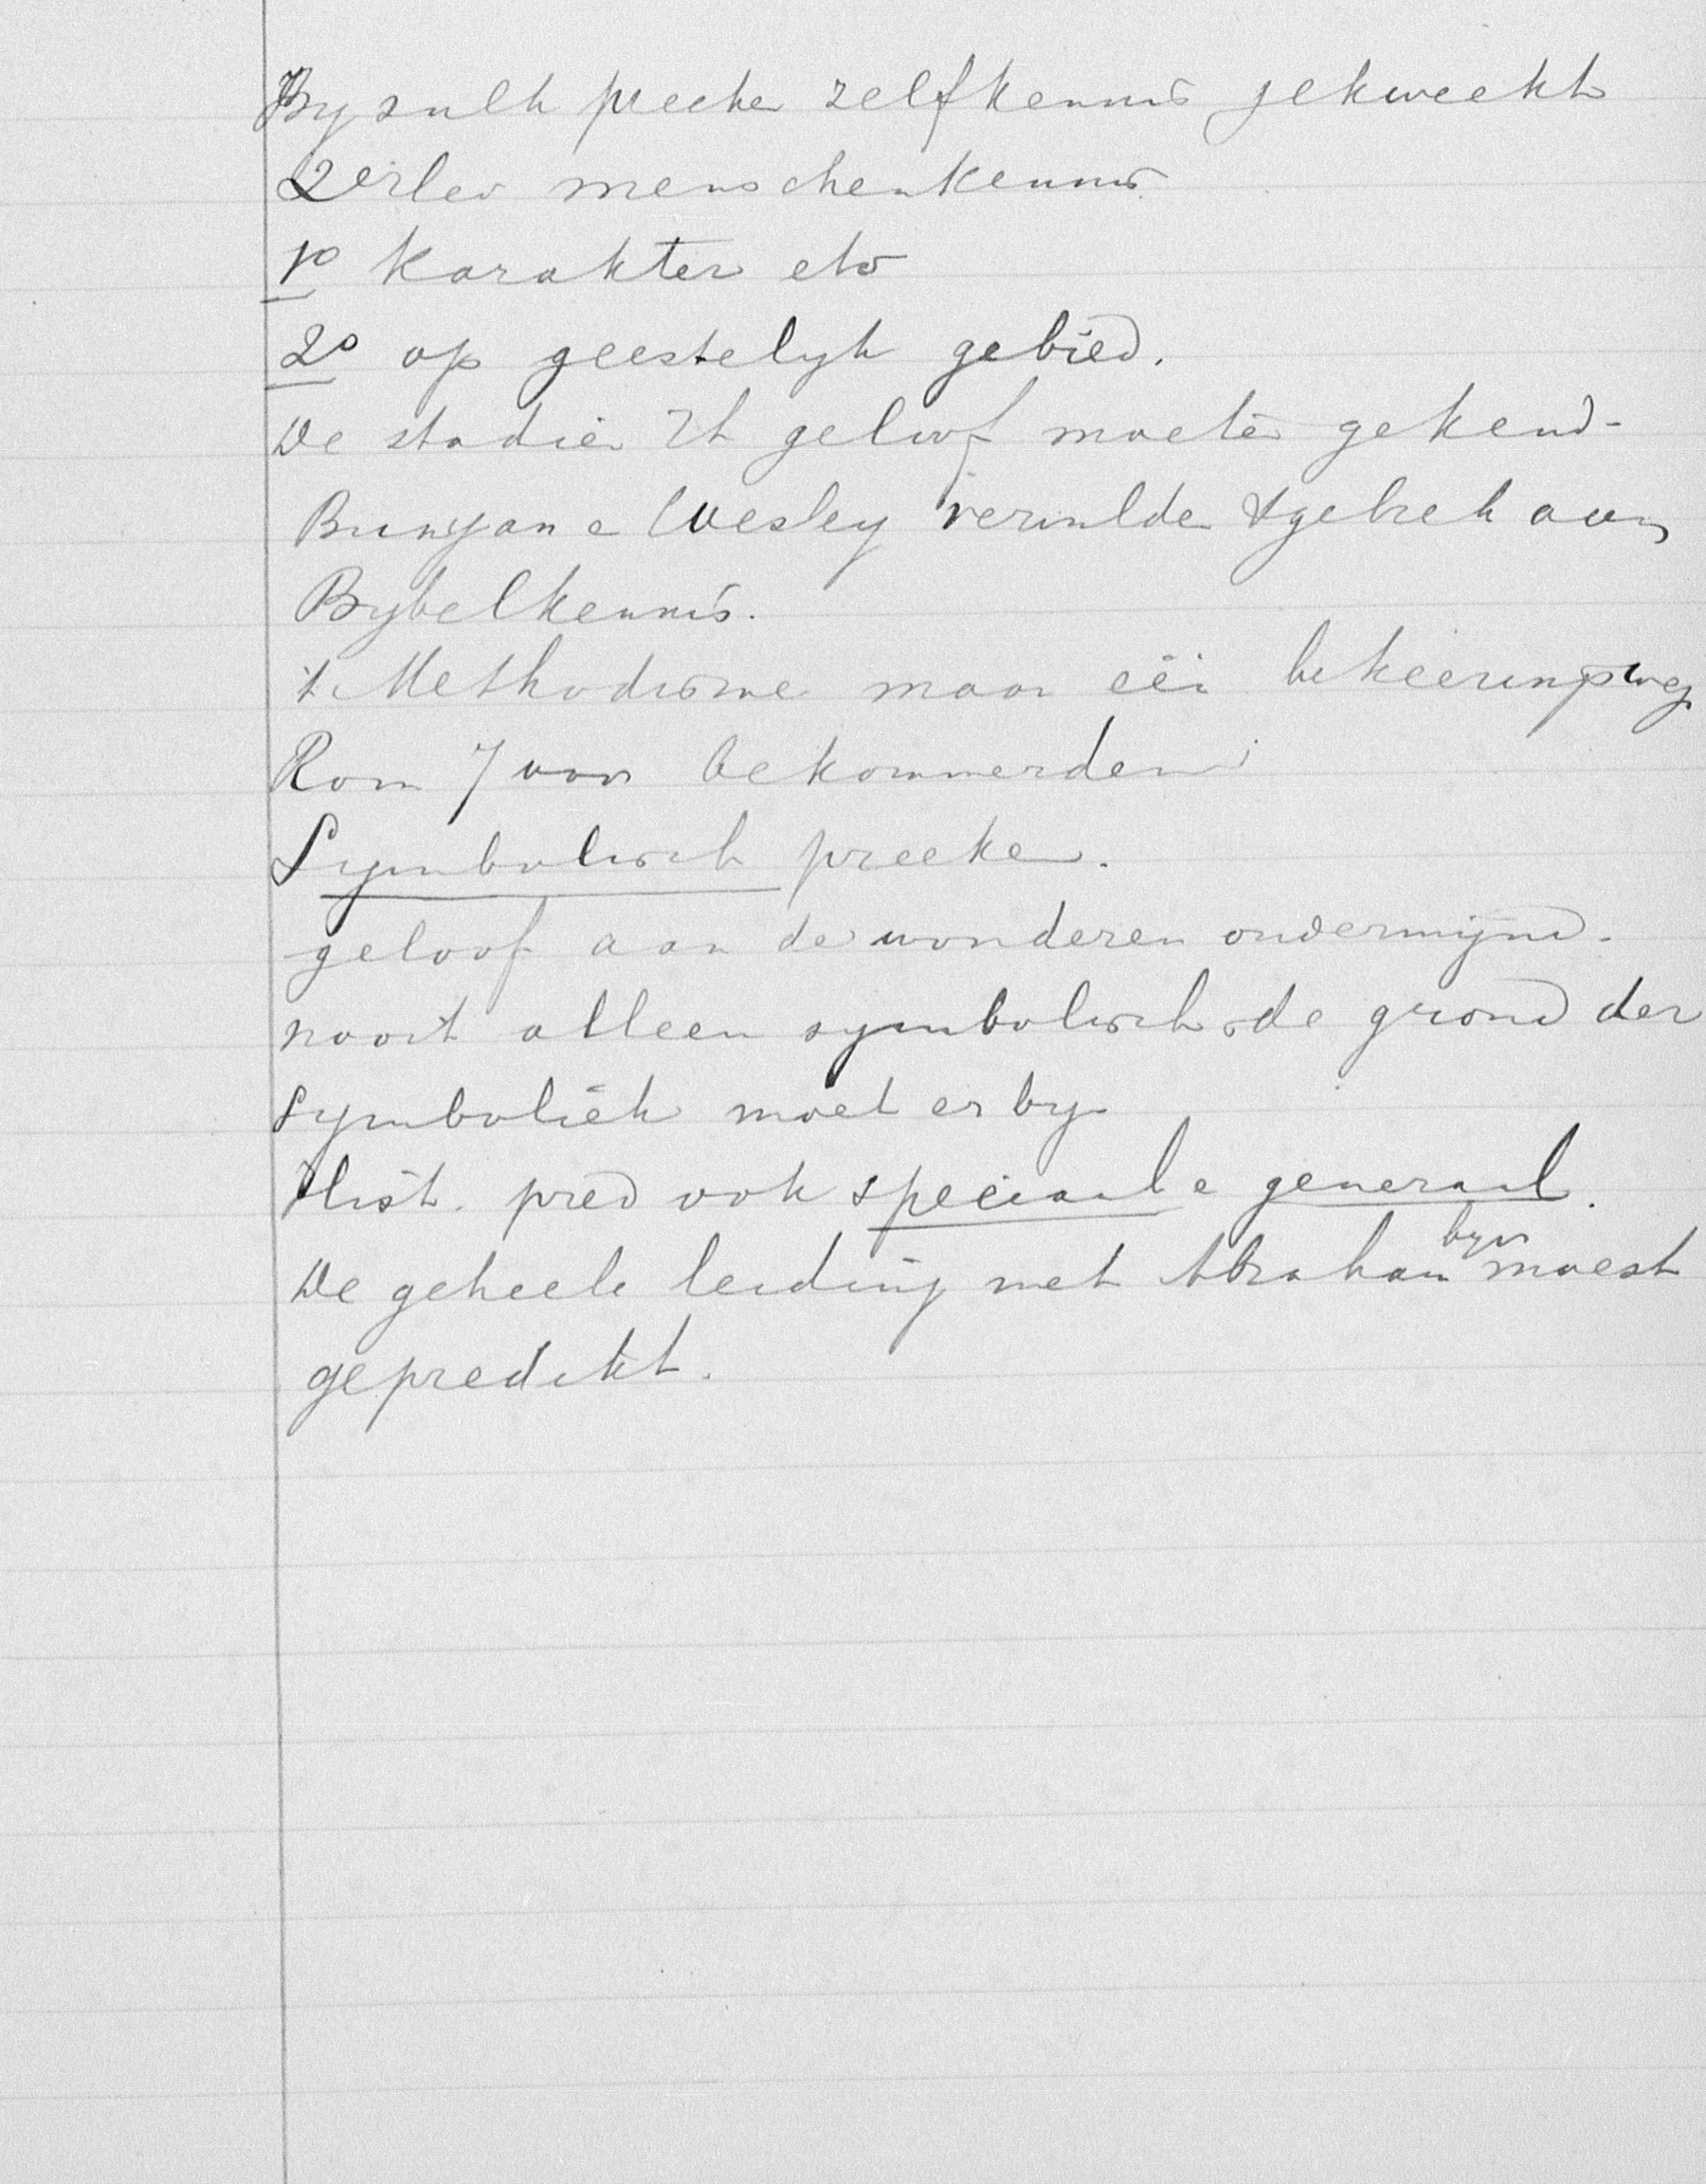 By zulk preeke zelfkennis gekweekt
2erlei menschenkennis
1° karakter etc
2° op geestelyk gebied.
De stadiën geloof moeten gekend-
Bunyan e Wesley vervulde 't gebrek aan
Bybelkennis.
't Methodisme maar één bekeeringsweg
Rom 7 voor bekommerden
Symbolisch preeken.
geloof aan de wonderen ondermijnd.
nooit alleen symbolisch de grond der
symboliek moet er by
Hist. pred ook speciaal e generaal.
De geheele leiding met Abraham byv moest
gepredikt.